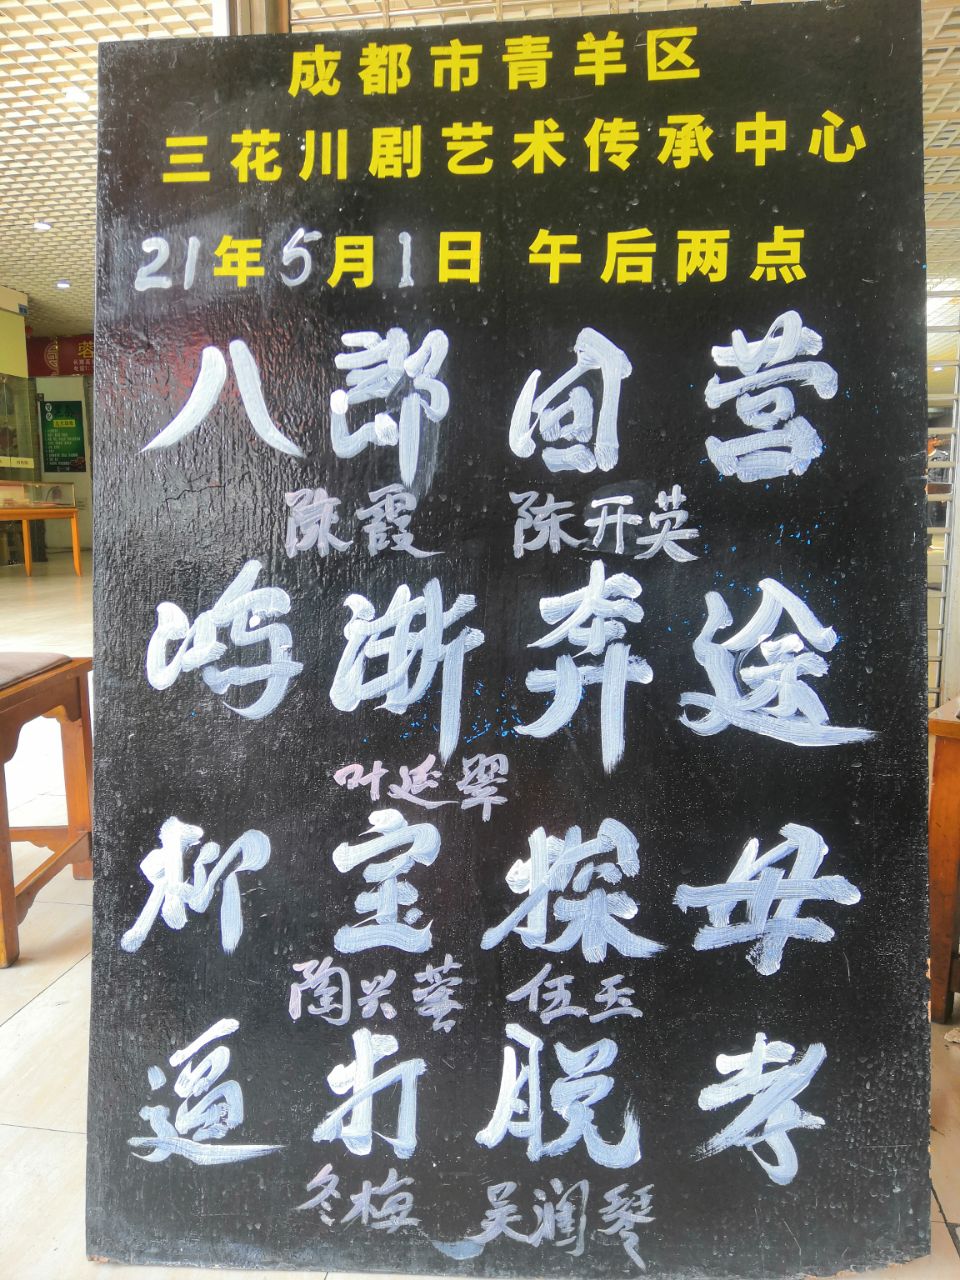 成都市青羊区
三花川剧艺术传承中心
21年5月1日 午后两点
八郎回营
陈霞 陈开英
鸿渐奔途
叶延翠
柳宝探母
陶兴蓉 伍玉
逼打脱孝
冬梅 吴润琴